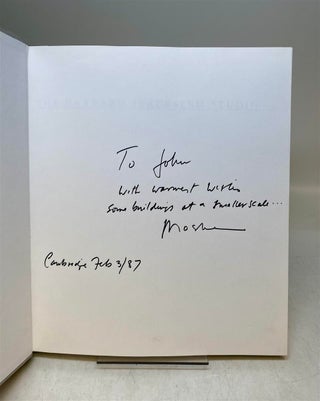 To John
with warmest wishes
some buildings at a smaller scale...
Moshe
Cambridge Feb 3/87